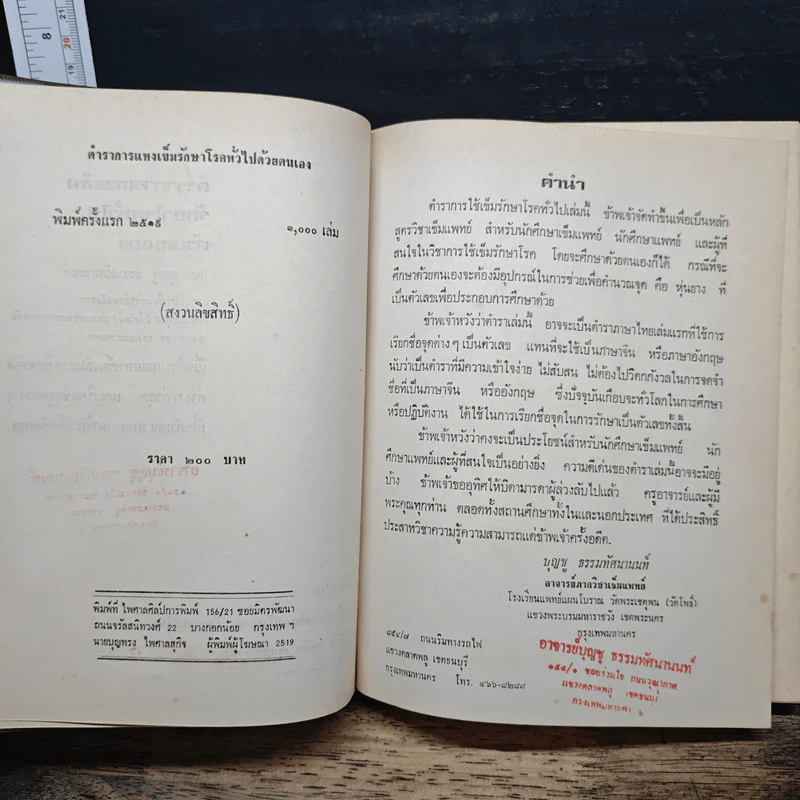 ตำราการแทงเข็มรักษาโรคทั่วไปด้วยตนเอง
พิมพ์ครั้งแรก ๒๕๑๙
๑,๐๐๐ เล่ม
(สงวนลิขสิทธิ์)
ราคา ๒๐๐ บาท
พิมพ์ที่ ไพศาลศิลป์การพิมพ์ 156/21 ซอยมิตรพัฒนา
ถนนจรัลสนิทวงศ์ 22 บางกอกน้อย กรุงเทพ ฯ
นายบุญทรง ไพศาลสุกิจ ผู้พิมพ์ผู้โฆษณา 2519
คำนำ
ตำราการใช้เข็มรักษาโรคทั่วไปเล่มนี้ ข้าพเจ้าจัดทำขึ้นเพื่อเป็นหลัก
สูตรวิชาเข็มแพทย์ สำหรับนักศึกษาเข็มแพทย์ นักศึกษาแพทย์ และผู้ที่
สนใจในวิชาการใช้เข็มรักษาโรค โดยจะศึกษาด้วยตนเองก็ได้ กรณีที่จะ
ศึกษาด้วยตนเองจะต้องมีอุปกรณ์ในการช่วยเพื่อคำนวณจุด คือ หุ่นยาง ที่
เป็นตัวเลขเพื่อประกอบการศึกษาด้วย
ข้าพเจ้าหวังว่าตำราเล่มนี้ อาจจะเป็นตำราภาษาไทยเล่มแรกที่ใช้การ
เรียกชื่อจุดต่าง ๆ เป็นตัวเลข แทนที่จะใช้เป็นภาษาจีน หรือภาษาอังกฤษ
นับว่าเป็นตำราที่มีความเข้าใจง่าย ไม่สับสน ไม่ต้องไปวิตกกังวลในการจดจำ
ชื่อที่เป็นภาษาจีน หรืออังกฤษ ซึ่งปัจจุบันเกือบจะทั่วโลกในการศึกษา
หรือปฏิบัติงาน ได้ใช้ในการเรียกชื่อจุดในการรักษาเป็นตัวเลขทั้งสิ้น
ข้าพเจ้าหวังว่าคงจะเป็นประโยชน์สำหรับนักศึกษาเข็มแพทย์ นัก
ศึกษาแพทย์และผู้ที่สนใจเป็นอย่างยิ่ง ความดีเด่นของตำราเล่มนี้อาจจะมีอยู่
บ้าง ข้าพเจ้าขออุทิศให้บิดามารดาผู้ล่วงลับไปแล้ว ครูอาจารย์และผู้มี
พระคุณทุกท่าน ตลอดทั้งสถานศึกษาทั้งในและนอกประเทศ ที่ได้ประสิทธิ์
ประสาทวิชาความรู้ความสามารถแด่ข้าพเจ้าครั้งอดีต.
บุญชู ธรรมทัศนานนท์
อาจารย์ภาควิชาเข็มแพทย์
โรงเรียนแพทย์แผนโบราณ วัดพระเชตุพน (วัดโพธิ์)
แขวงพระบรมมหาราชวัง เขตพระนคร
กรุงเทพมหานคร
๘๕๔/๗ ถนนริมทางรถไฟ
แขวงตลาดพลู เขตธนบุรี
กรุงเทพมหานคร โทร. ๔๖๖-๘๒๘๘
อาจารย์บุญชู ธรรมทัศนานนท์
๑๕๔/๑ ซอยร่วมใจ ถนนวุฒากาศ
แขวงตลาดพลู เขตธนบุรี
กรุงเทพมหานคร ๖
8
19
20
21